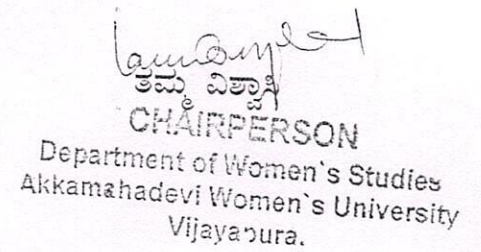 ತಮ್ಮ ವಿಶ್ವಾಸಿ
CHAIRPERSON
Department of Women`s Studies
Akkamahadevi Women`s University
Vijayapura.